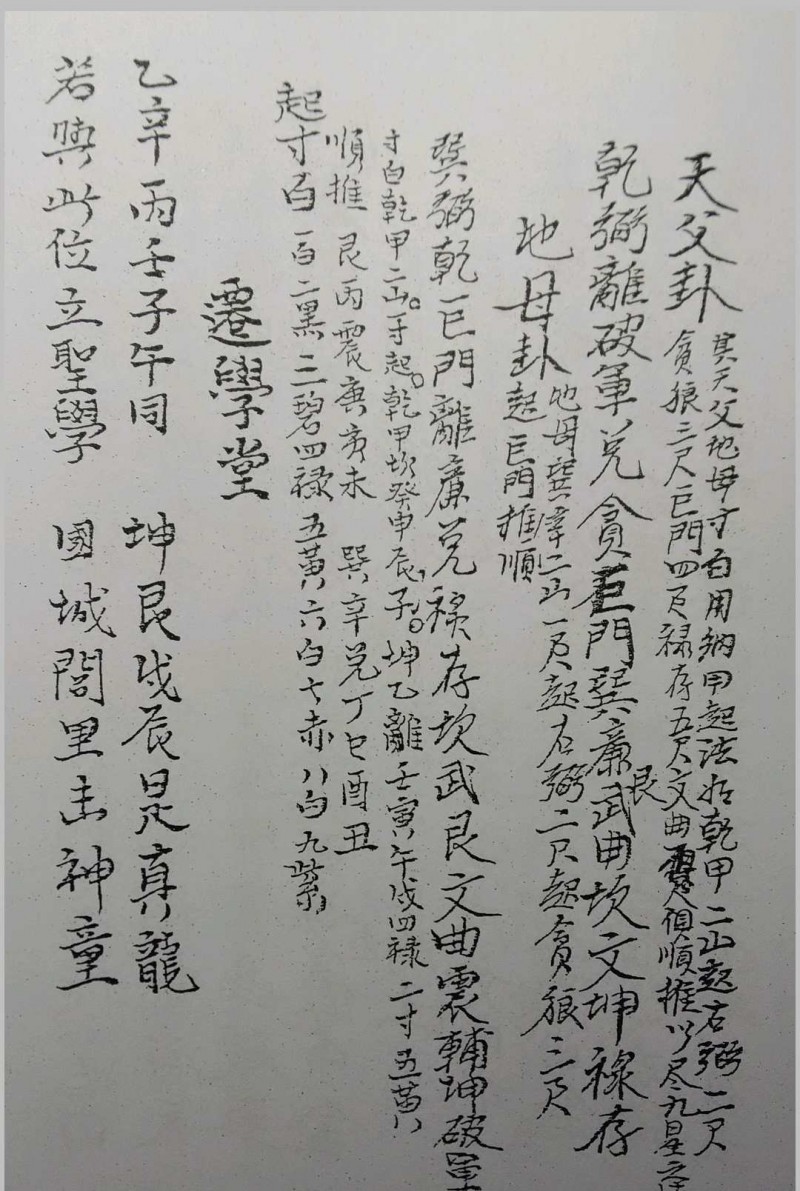 天父卦
其天父地母寸白用納甲起法如乾甲二山起右弼二尺
貪狼三尺巨門四尺祿存五尺文曲順推以尽九星
乾弼離破軍兌貪巨門巽廉艮武曲坎文坤祿存
地母卦
地母巽辛二山一尺起右弼二尺起貪狼三尺
起巨門推順
巽弼乾巨門離廉兌祿存坎武艮文曲震輔坤破軍
寸白乾甲二山。一寸起。乾甲坎癸申辰子。坤乙離壬寅午戌四祿 二寸五黃
順推 艮丙震庚亥未 巽辛兌丁巳酉丑
起寸白 一白二黑三碧四祿五黃六白七赤八白九紫
遷學堂
乙辛丙壬子午同 坤艮戌辰是真龍
若與此位立聖學 國城閭里出神童